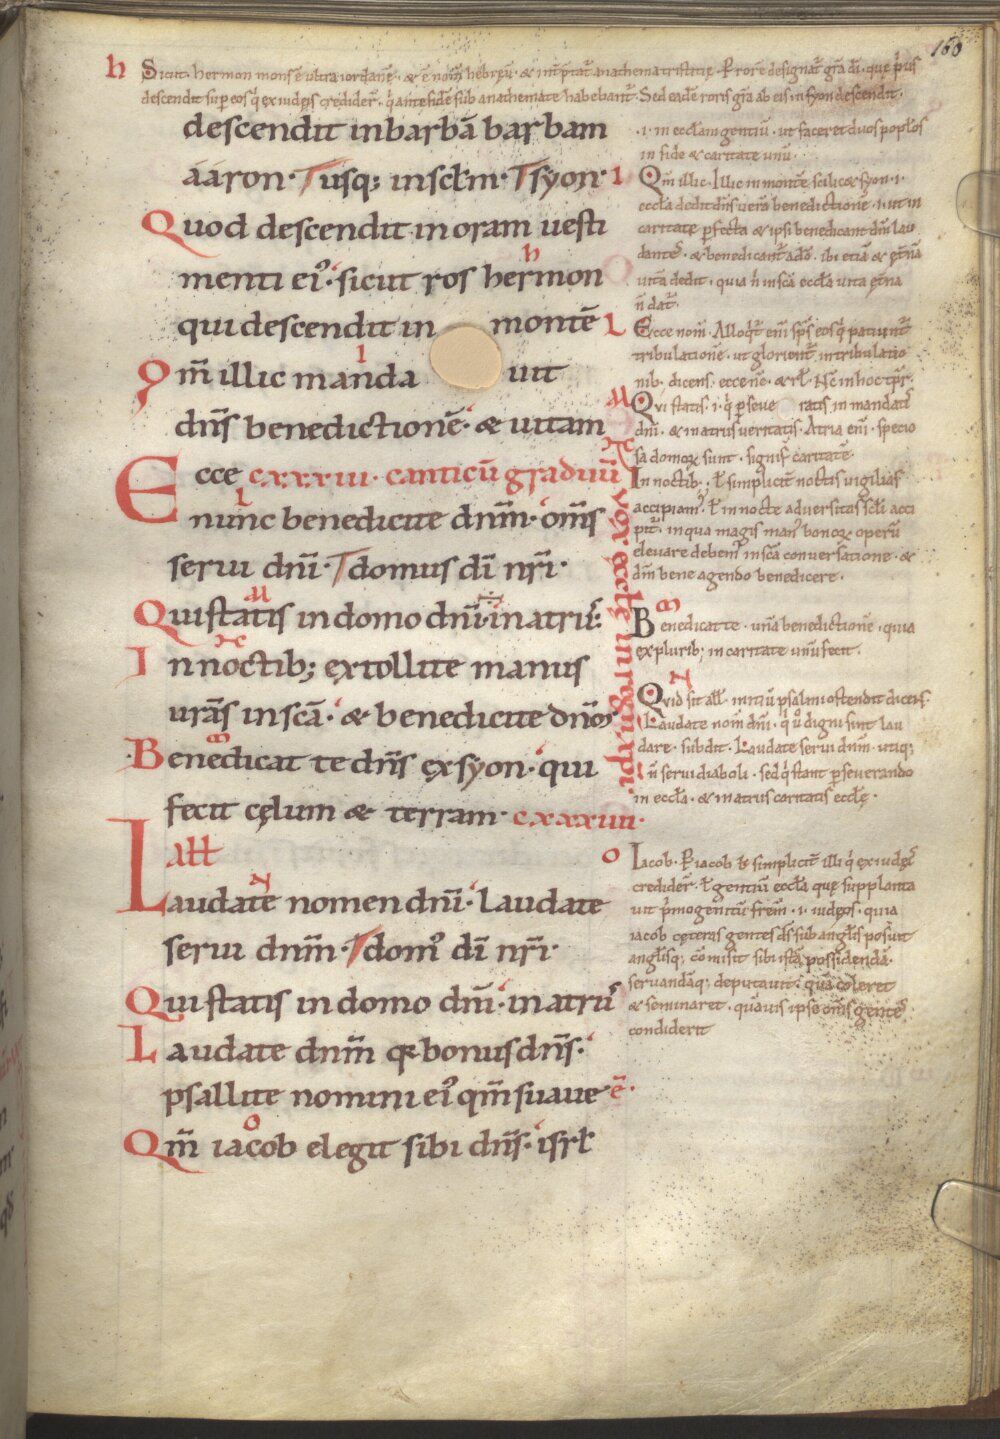 160
h Sicut hermon mons ē ultra iordanē · & ē nom̄ hebreū · & int̄p̄tat̄ anathema tristitię · P rorē designat̄ gr̄a dī · quę p̄us
descendit sup eos q̇ ex iudęis credider̄ · q̇ ante fidē sub anathemate habebant̄ · Sed eadē roris gr̄a ab eis · in syon descendit ·
descendit in barbā barbam
ááron · usq; in · syon ·
Quod descendit in oram uesti
menti ei᷒ · sicut ros hermon
h
qui descendit in montē
Qm̄ illic manda uit
l
dn̄s benedictionē · & uitam
Ecce cxxxiii · canticū graduū
nunc benedicite dnm̄ · om̄s
L
serui dnī · domus dī nr̄i ·
Qui statis in domo dnī · in atrii᷒
M
In noctib; extollite manus
urās in scā · & benedicite dnm̄
Benedicat te dn̄s ex syon · qui
fecit cęlum & terram · cxxxiiii ·
all
Laudate nomen dnī · Laudate
N
serui dnm̄ · dom᷒ dī nr̄i ·
Qui statis in domo dnī · in atrii᷒
Laudate dnm̄ q̄ bonus dn̄s ·
psallite nomini ei᷒ qm̄ suaue ē ·
Qm̄ iacob elegit sibi dn̄s · isrł
o
uox ęcclę in regn
· i · in ecclam gentiū · ut faceret duos poplos
in fide & caritate unū ·
l Qm̄ illic · Illic in monte scilic& syon · i ·
eccła dedit dn̄s uera benedictionē · i · ut in
caritate pfecta & ipsi benedicant dnm̄ lau
dantes · & benedicant̄ a dō · ibi etiā & ęt̄nā
uitā dedit · quia n̄ in scā eccła uita ęt̄na
n̄ dat̄ ·
L Ecce nom̄ · Alloqt̄ enī sp̄s eos q̇ patiunt̄
tribulationē · ut glorient̄ in tribulatio
nib; dicens · ecce nē · & rł · Nc̄ in hoc tp̄r ·
M Qui statis · i · q̇ pseue ratis in mandatis
dnī · & in atriis ueritatis · Atria enī · specio
sa domoꝝ sunt · signif̄ caritatē
In noctib; · ł simplicit̄ noctis uigilias
accipiam᷒ · ł in nocte aduersitas scłi acci
pit̄ · in qua magis man᷒ bonoꝝ operū
eleuare debem᷒ in scā conuersatione · &
dnm̄ bene agendo benedicere ·
Benedicat te · una benedictione · quia
ex plurib; in caritate unū fecit ·
N
Quid sit all · initiū psalmi ostendit dicens ·
Laudate nom̄ dnī · q̇ ů digni sint lau
dare · subdit · Laudate serui dnm̄ · utiq;
n̄ serui diaboli · sed q̇ stant pseuerando
in eccła · & in atriis caritatis ecclę ·
o Iacob · P iacob simplicit̄ illi q̇ ex iudęis
credider̄ · ł gentiū eccła quę supplanta
uit p̄mogenitū frem̄ · i · iudęos · quia
iacob cęteras gentes ds̄ sub anglis posuit
anglisq; cōmisit sibi istā possidendā ·
seruandāq; deputauit · quā coleret
& seminaret · quāuis ipse om̄s gentes
condiderit